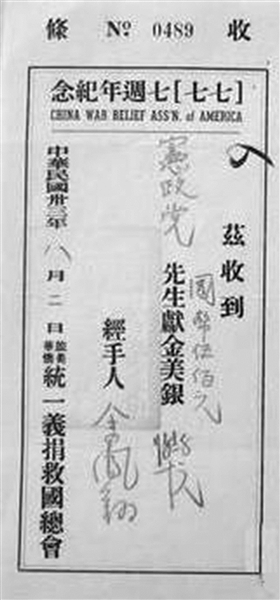 收 Nº 0489 條
[七七]七週年紀念
CHINA WAR RELIEF ASS'N. of AMERICA
茲收到
國幣伍佰元
憲政党先生獻金美銀
經手人
旅美華僑統一義捐救國總會
中華民國卅三年八月二日